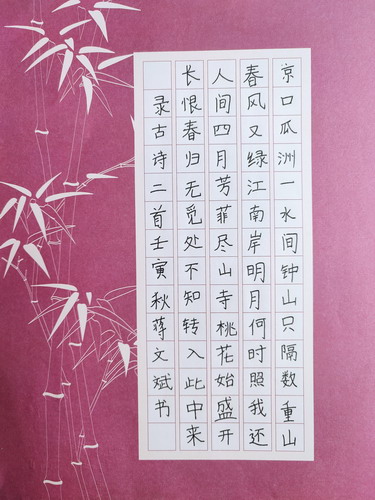 京口瓜洲一水间钟山只隔数重山
春风又绿江南岸明月何时照我还
人间四月芳菲尽山寺桃花始盛开
长恨春归无觅处不知转入此中来
录古诗二首壬寅秋蒋文斌书